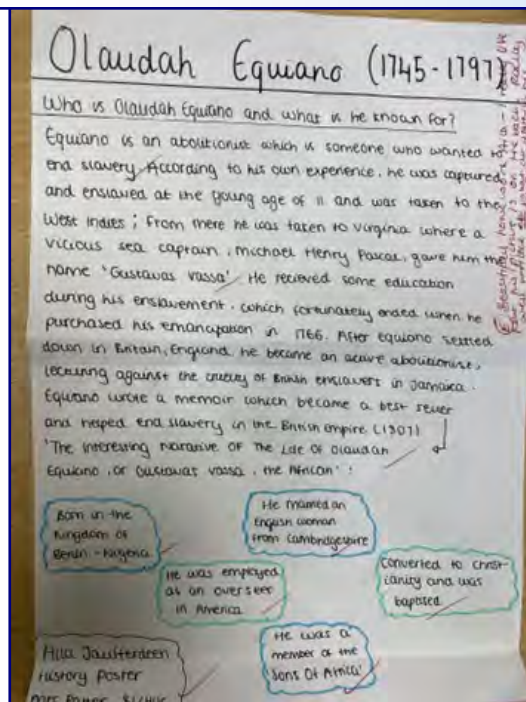 Olaudah Equiano (1745-1797)
Who is Olaudah Equiano and what is he known for?
Equiano is an abolitionist which is someone who wanted to
end slavery. According to his own experience, he was captured
and enslaved at the young age of 11 and was taken to the
West Indies; from there he was taken to Virginia where a
vicious sea captain, Michael Henry Pascal, gave him the
name 'Gustavas Vassa'. He recieved some education
during his enslavement, which fortunately ended when he
purchased his in 1766. After equiano settled
down in Britain, England, he became an active abolitionist,
lecturing against the cruelty of British enslavers in Jamaica.
Equiano wrote a memoir which became a best seller
and helped end slavery in the British empire (1807)
'The Interesting Narative OF The Life Of Olaudah
Equiano, or Gustavas Vassa, the African'.
Born in the
Kingdom of
Benin - Nigeria
He married an
English woman
from Cambridgeshire
He was employed
as an overseer
in America
Converted to christ-
ianity and was
baptised
He was a
member of the
'Sons Of Africa'
History Poster